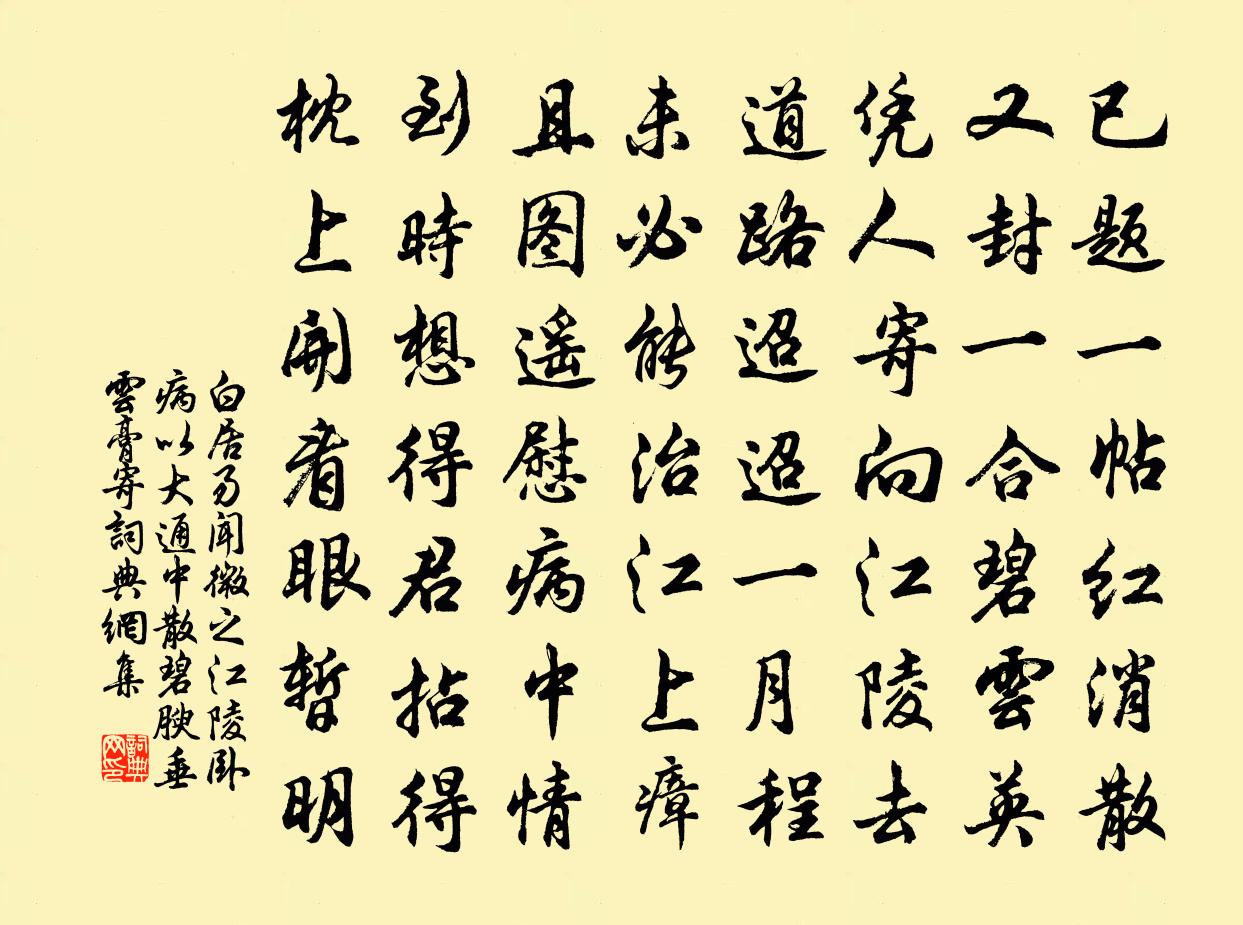 已题一帖红消散
又封一合碧雲英
凭人寄向江陵去
道路迢迢一月程
未必能治江上瘴
且图遥慰病中情
到時想得君拈得
枕上開看眼暫明
白居易闻微之江陵卧
病以大通中散碧腴垂
雲膏寄詞典網集
詞典
网印